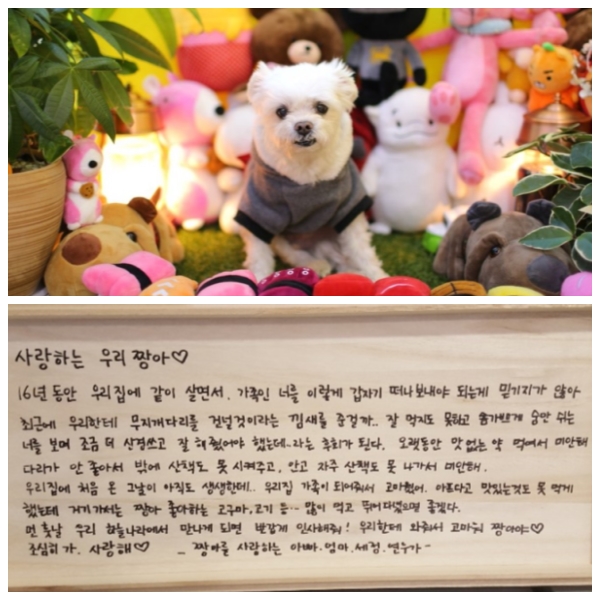 사랑하는 우리 짱아♡
16년 동안 우리집에 같이 살면서, 가족인 너를 이렇게 갑자기 떠나보내야 되는게 믿기지가 않아
최근에 우리한테 무지개다리를 건널것이라는 낌새를 준걸까.. 잘 먹지도 못하고 숨가쁘게 숨만 쉬는
너를 보며 조금 더 신경쓰고 잘 해줬어야 했는데..라는 후회가 된다. 오랫동안 맛없는 약 먹여서 미안해
다리가 안 좋아서 밖에 산책도 못 시켜주고, 안고 자주 산책도 못 나가서 미안해.
우리집에 처음 온 그날이 아직도 생생한데.. 우리집 가족이 되어줘서 고마웠어. 아프다고 맛있는것도 못 먹게
했는데 거기가서는 짱아 좋아하는 고구마,고기 등.. 많이 먹고 뛰어다녔으면 좋겠다.
먼 훗날 우리 하늘나라에서 만나게 되면 반갑게 인사해줘! 우리한테 와줘서 고마워 짱아야♡
조심히 가. 사랑해♡ - 짱아를 사랑하는 아빠.엄마.세정.연우가-